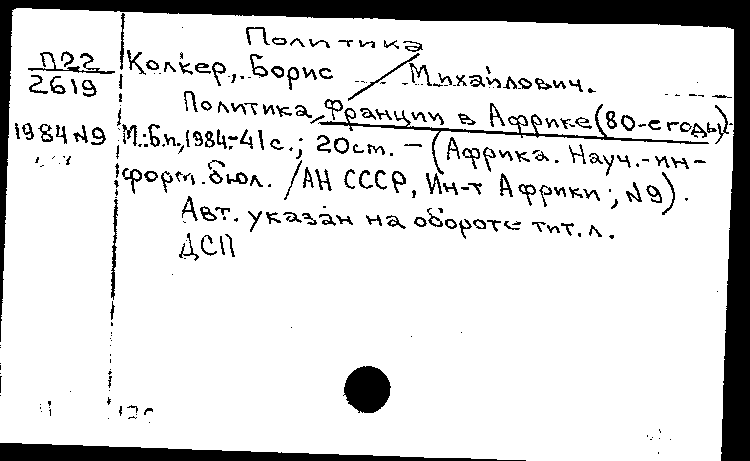 Политика
П22
2619
Колкер, Борис Михайлович.
Политика Франции в Африке (80-е годы).
1984 N9 М.: б.п., 1984.- 41с.; 20см. - (Африка. Науч.-ин-
форм. бюл. /АН СССР, Ин-т Африки; N9).
Авт. указан на обороте тит. л.
ДСП